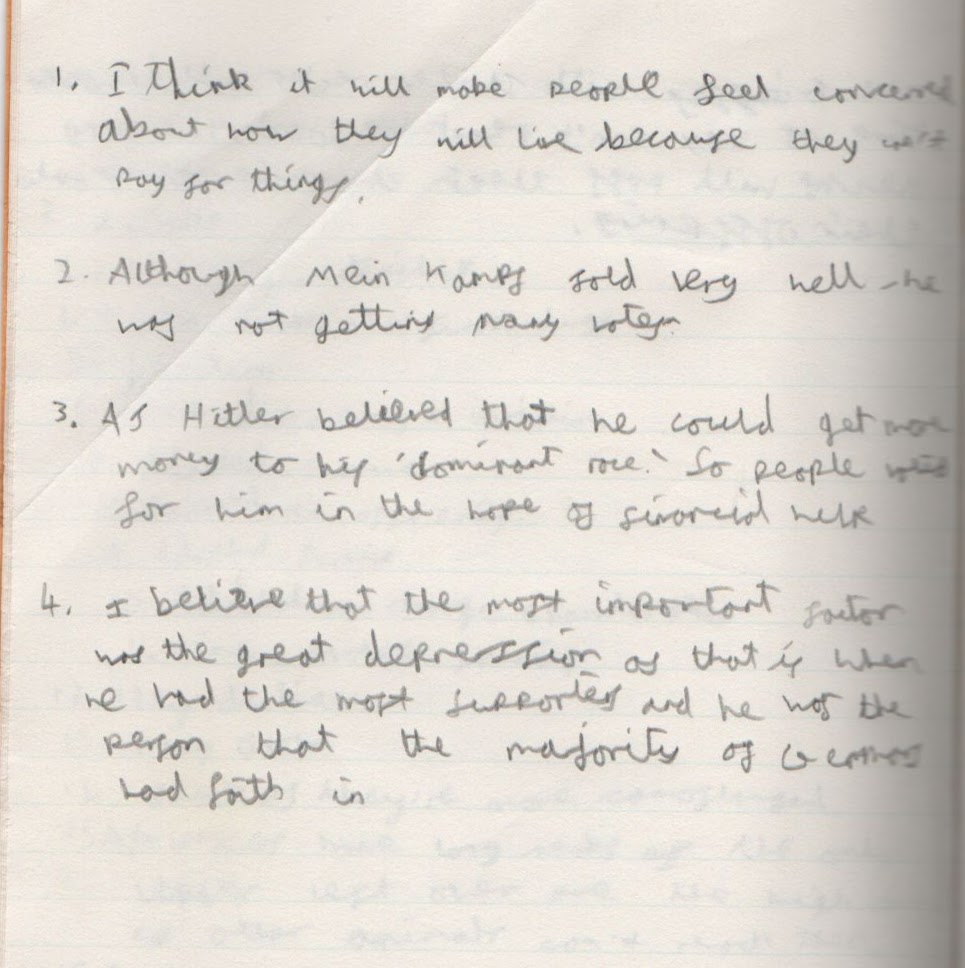 1. I think it will make people feel concerned
about how they will live because they can't
pay for things.
2. Although Mein Kampf sold very well he
was not getting many votes.
3. As Hitler believed that he could get more
money to his 'dominant race.' So people
for him in the hope of financial help
4. I believe that the most important factor
was the great depression as that is when
he had the most supporters and he was the
person that the majority of Germans
had faith in